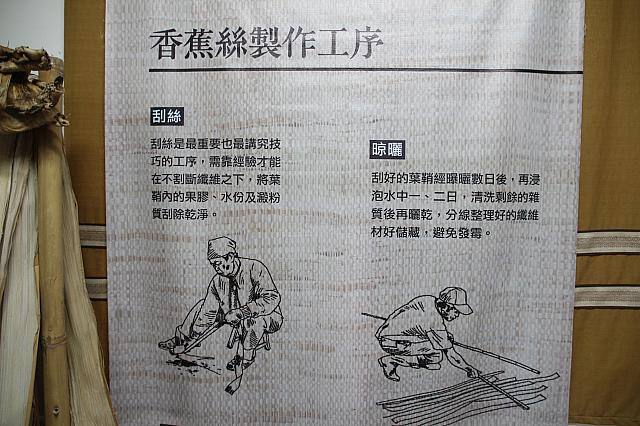 香蕉絲製作工序
刮絲
刮絲是最重要也最講究技
巧的工序，需靠經驗才能
在不割斷纖維之下，將葉
鞘內的果膠、水份及澱粉
質刮除乾淨。
晾曬
刮好的葉鞘經曝曬數日後，再浸
泡水中一、二日，清洗剩餘的雜
質後再曬乾，分線整理好的纖維
材好儲藏，避免發霉。